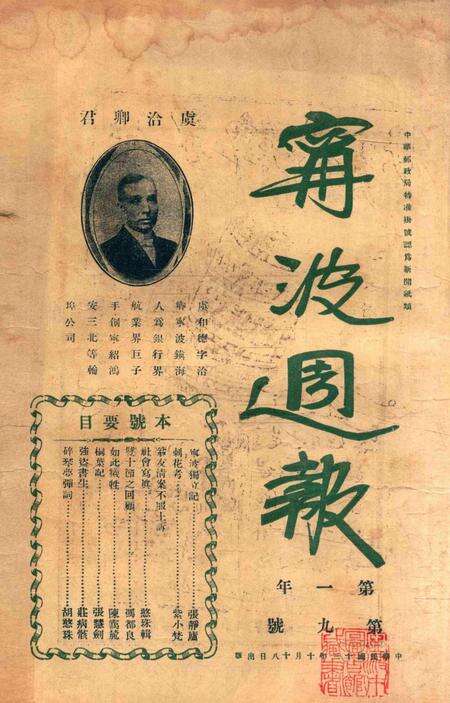 中華郵政局特准掛號認爲新聞紙類
甯波週報
第一年
第九號
中華民國十三年十月十八日出版
虞洽卿君
虞和德字洽
卿寧波鎮海
人爲銀行界
航業界巨子
手創寧紹鴻
安三北等輪
埠公司
本號要目
寧波獨立記……張靜廬
刺花考……紫小梵
翁友清案不服上訴
社會寫真……憨珠輯
雙十節之回顧……馮都良
如此犧牲……陳
桐葉記……張慧劍
強盜書生……莊病骸
碎琴樓彈詞……胡憨珠